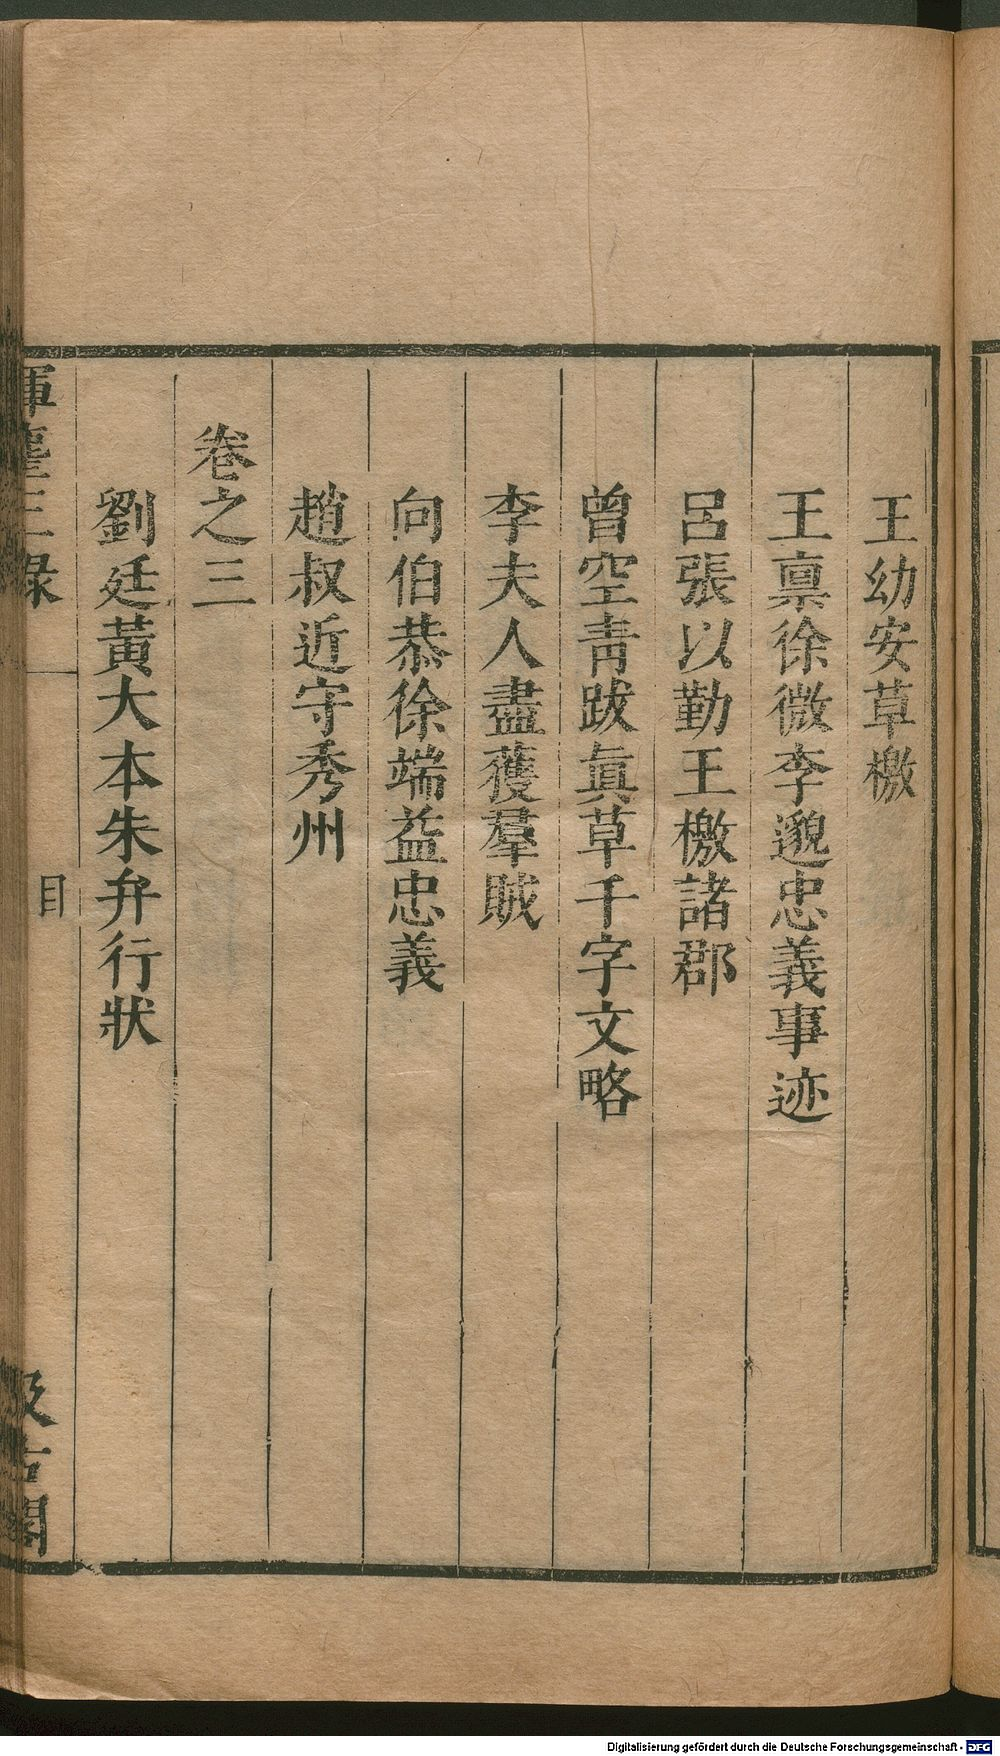 王幼安草檄
王稟徐徽李邈忠義事迹
呂張以勤王檄諸郡
曾空靑跋眞草千字文略
李夫人盡獲羣賊
向伯恭徐端益忠義
趙叔近守秀州
卷之三
劉廷黃大本朱弁行狀
揮麈三錄
目
汲古閣
Digitalisierung gefördert durch die Deutsche Forschungsgemeinschaft - DFG